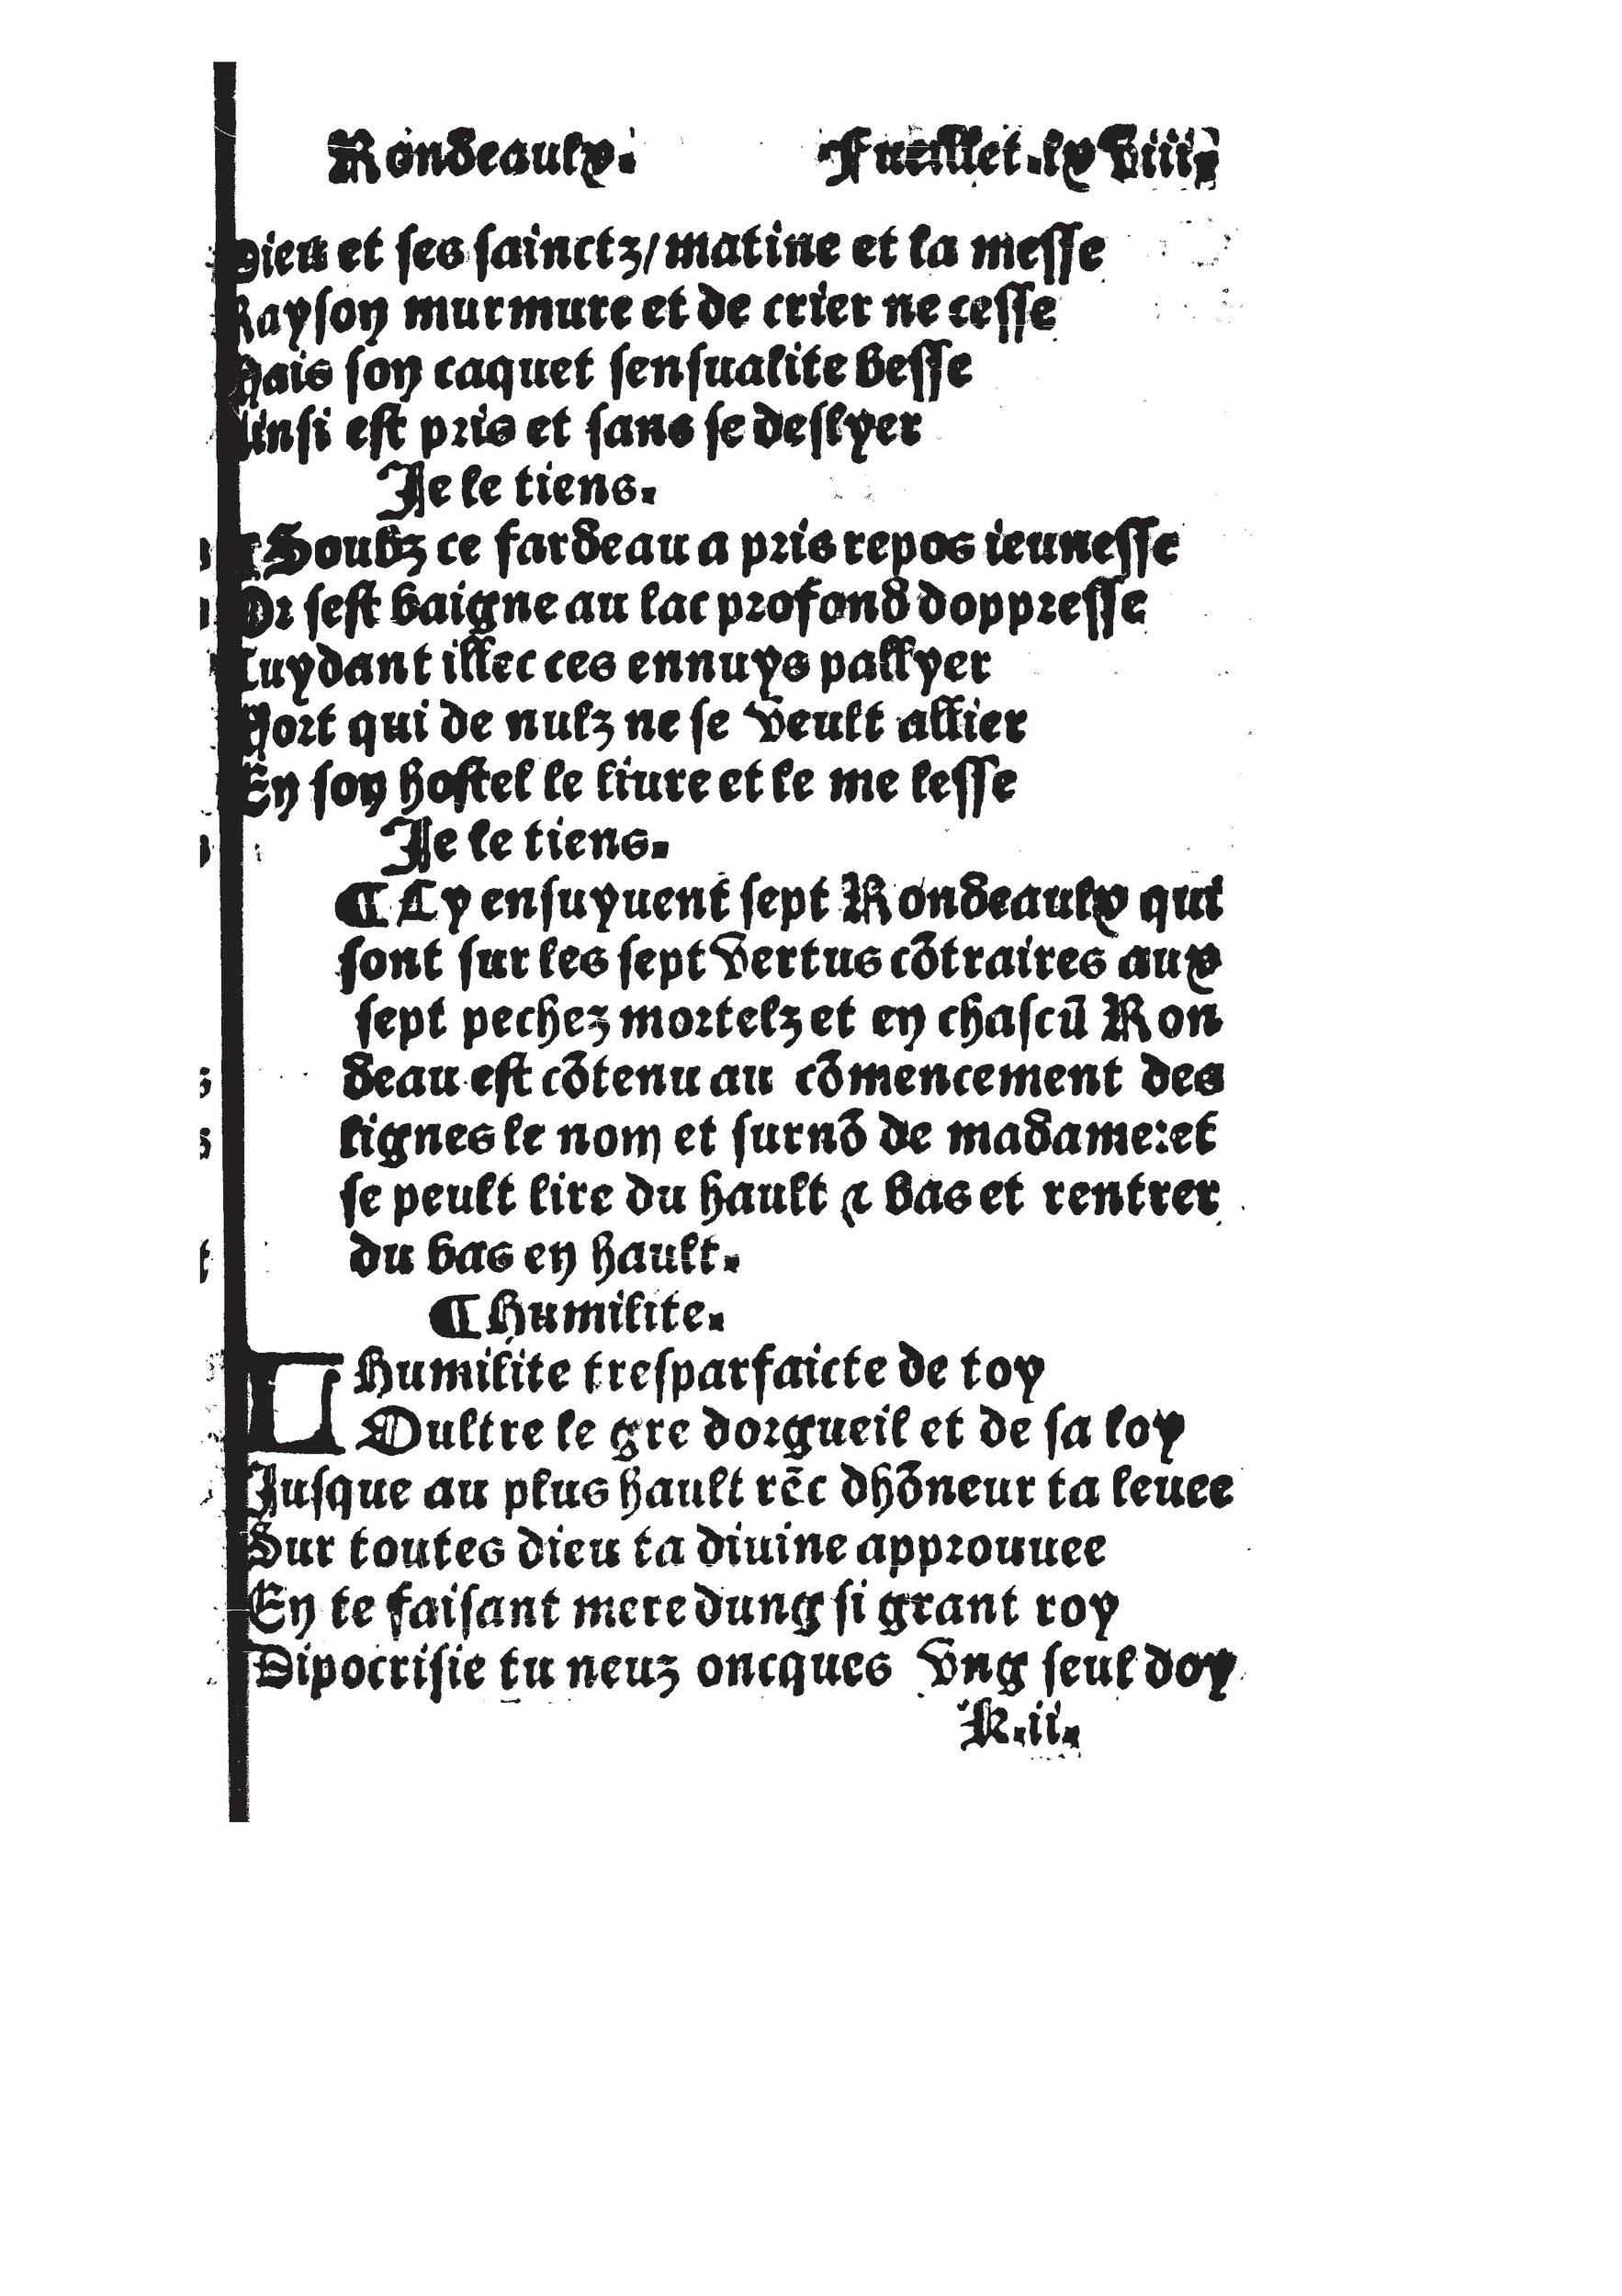 Rondeaulx. Fueillet.lxviii.
Dieu et ses sainctz/matine et la messe
Rayson murmure et de crier ne cesse
Mais son caquet sensualite besse
Ainsi est pris et sans se deslyer
Je le tiens.
¶Soubz ce fardeau a pris repos ieunesse
Or sest baigne au lac profond doppresse
Cuydant illec ces ennuys pallyer
Mort qui de nulz ne se veult allier
En son hostel le liure et le me lesse
Je le tiens.
¶Cy ensuyuent sept Rondeaulx qui
sont sur les sept vertus cõtraires aux
sept pechez mortelz et en chascũ Ron
deau est cõtenu au cõmencement des
lignes le nom et surnõ de madame:et
se peult lire du hault & bas et rentrer
du bas en hault.
¶Humilite.
LHumilite tresparfaicte de toy
Oultre le gre dorgueil et de sa loy
Jusque au plus hault rẽc dhõneur ta leuee
Sur toutes dieu ta diuine approuuee
En te faisant mere dung si grant roy
Dipocrisie tu neuz oncques vng seul doy
K.ii.